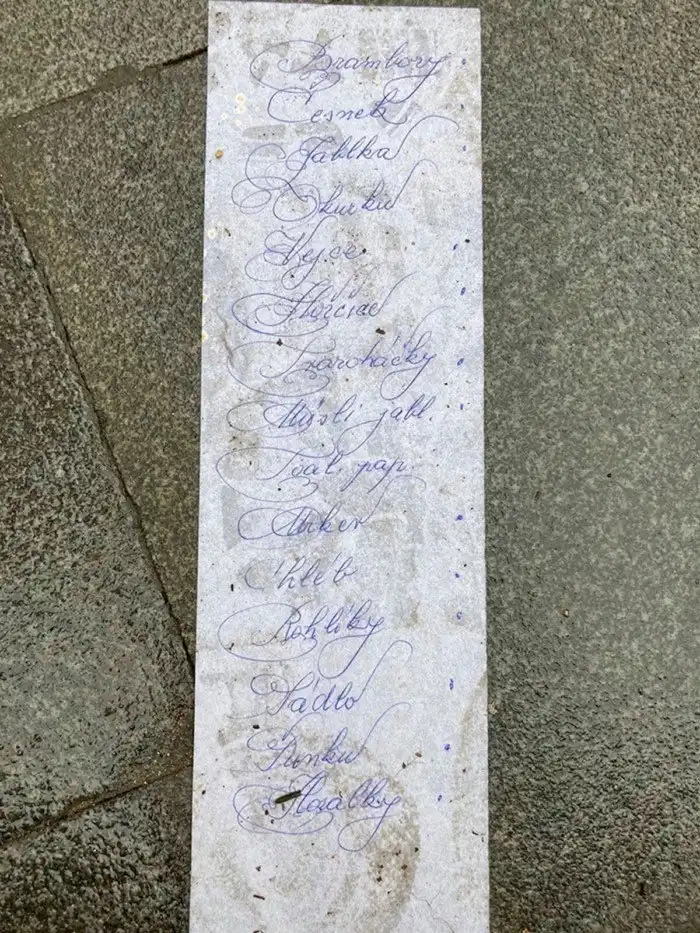 Brambory
Česnek
Jablka
Okurku
Vejce
Hořčice
Tvaroháčky
Müsli jabl.
Toal. pap.
Mrkev
Chléb
Rohlíky
Sádlo
Šunku
Horalky